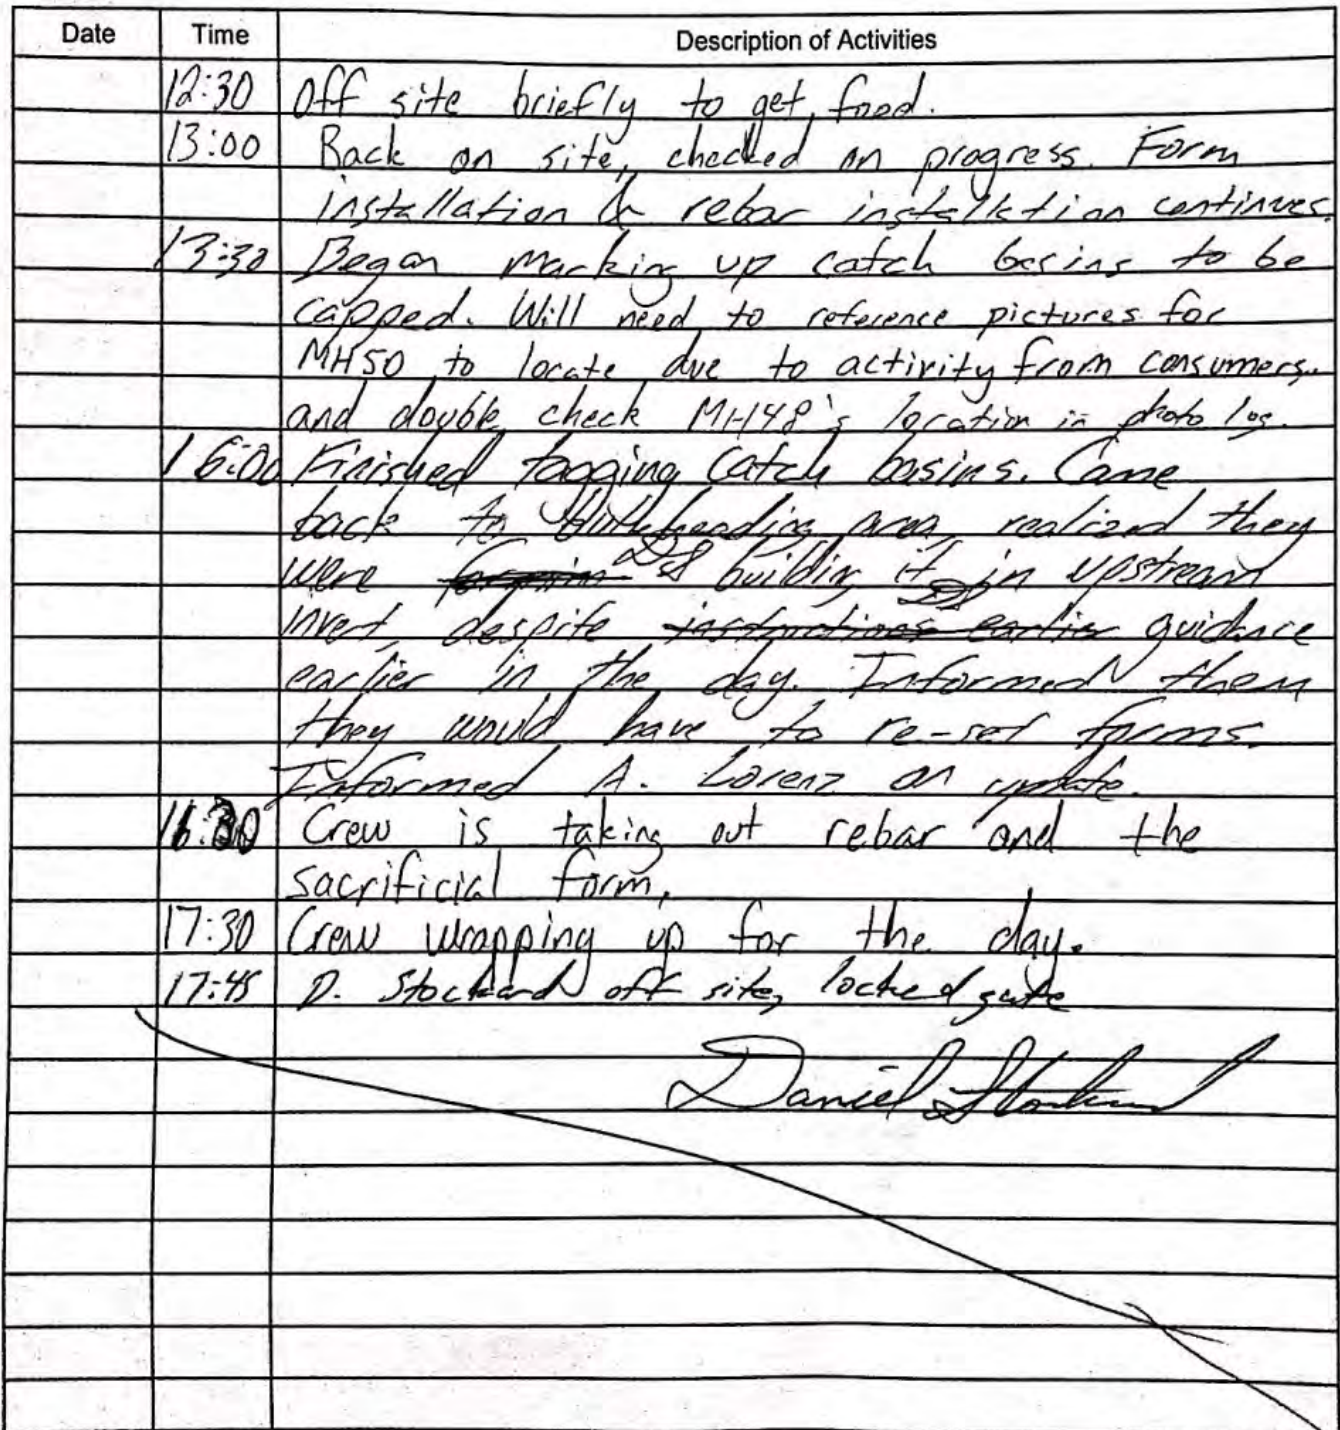 Date Time Description of Activities
12:30 Off site briefly to get food.
13:00 Back on site, checked on progress. Form
installation & rebar installation continues.
13:30 Began marking up catch basins to be
capped. Will need to reference pictures for
MH50 to locate due to activity from consumers.
and double check MH48's location in photo log.
16:00 Finished tagging catch basins. Came
back to bulkheading area, realized they
were DS building it in upstream
invert, despite instructions earlier guidance
earlier in the day. Informed them
they would have to re-set forms.
Informed A. Lorenz on update.
16:30 Crew is taking out rebar and the
sacrificial form.
17:30 Crew wrapping up for the day.
17:45 D. Stockard off site, locked gate
Daniel Stockard